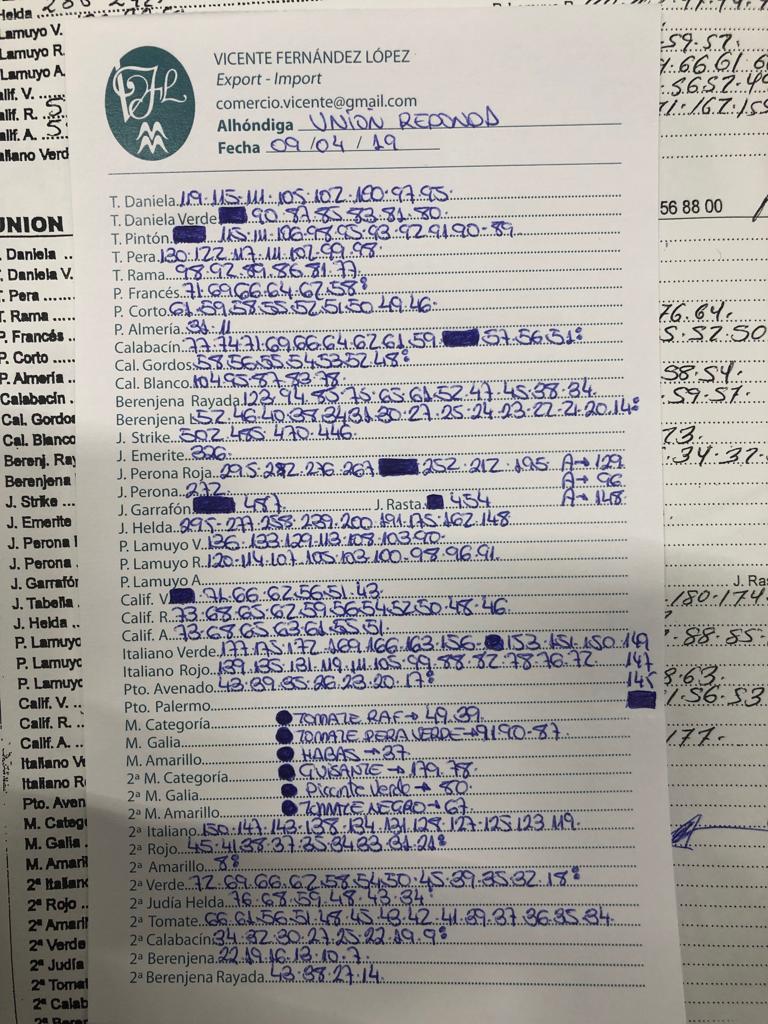 VICENTE FERNÁNDEZ LÓPEZ
Export - Import
comercio.vicente@gmail.com
Alhóndiga UNION REDONDA
Fecha 09/04/19
T. Daniela 119.115.111.105.102.100.97.95.
T. Daniela Verde 90.87.85.83.81.80.
T. Pintón 115.111.106.98.95.93.92.91.90-89.
T. Pera 130.122.117.111.102.99.98.
T. Rama 98.92.89.86.81.77.
P. Francés 71.69.66.64.62.58
P. Corto 61.59.58.55.52.51.50.49.46.
P. Almería 31.11
Calabacín 77.74.71.69.66.64.62.61.59. 57.56.51
Cal. Gordos 58.56.55.54.53.52.48
Cal. Blanco 104.95.87.83.78.
Berenjena Rayada 123.94.85.75.65.61.52.47.45.38.34
Berenjena 52.46.40.38.34.31.30.27.25.24.23.22.21.20.14
J. Strike 502.485.470.446.
J. Emerite 326.
J. Perona Roja 295.282.276.267 252.212.195 A→129
J. Perona 272. A→96
J. Garrafón 487 J. Rasta 454 A→148
J. Helda 295.277.258.239.200.191.175.162.148
P. Lamuyo V. 136.133.129.113.108.103.90.
P. Lamuyo R. 120.114.107.105.103.100.98.96.91.
P. Lamuyo A.
Calif. V. 71.66.62.56.51.43
Calif. R. 73.68.65.62.59.56.54.52.50.48.46.
Calif. A. 73.68.65.63.61.55.51.
Italiano Verde 177.175.172.169.166.163.156. 153.151.150.149
Italiano Rojo 139.135.131.119.111.105.99.88.82.78.76.72. 147
Pto. Avenado 43.39.35.26.23.20.17 145
Pto. Palermo
M. Categoría TOMATE RAF→49.39.
M. Galia TOMATE PERA VERDE→91.90-87.
M. Amarillo HABAS→37
2ª M. Categoría GUISANTE→179.78.
2ª M. Galia Picante Verde→80.
2ª M. Amarillo TOMATE NEGRO→67.
2ª Italiano 150.147.143.138.134.131.128.127.125.123.119.
2ª Rojo 45.41.38.37.35.34.33.31.21
2ª Amarillo 8
2ª Verde 72.69.66.62.58.54.50.45.39.35.32.18
2ª Judía Helda 76.68.59.48.43.34
2ª Tomate 66.61.56.51.48.45.43.42.41.39.37.36.35.34.
2ª Calabacín 34.32.30.27.25.22.19.9
2ª Berenjena 22.19.16.13.10.7.
2ª Berenjena Rayada 43.38.27.14.
Helda
Lamuyo V.
Lamuyo R.
Lamuyo A.
alif. V.
alif. R.
alif. A.
aliano Verd
UNION
. Daniela ..
. Daniela V.
T. Pera
T. Rama
P. Francés
P. Corto
P. Almería
Calabacín
Cal. Gordo
Cal. Blanco
Berenj. Ray
Berenjena
J. Strike
J. Emerite
J. Perona
J. Perona
J. Garrafón
J. Tabella
J. Helda
P. Lamuyo
P. Lamuyo
P. Lamuyo
Calif. V.
Calif. R.
Calif. A.
Italiano Ve
Italiano R
Pto. Aven
M. Categ
M. Galia
M. Amaril
2ª Italiano
2ª Rojo
2ª Amaril
2ª Verde
2ª Judía
2ª Tomat
2ª Calab
59.57.
56 88 00
76.64.
58.54.
59.57.
73.
.34.32.
J. Ras
180.174
88.85
8.63.
1.56.53
177.